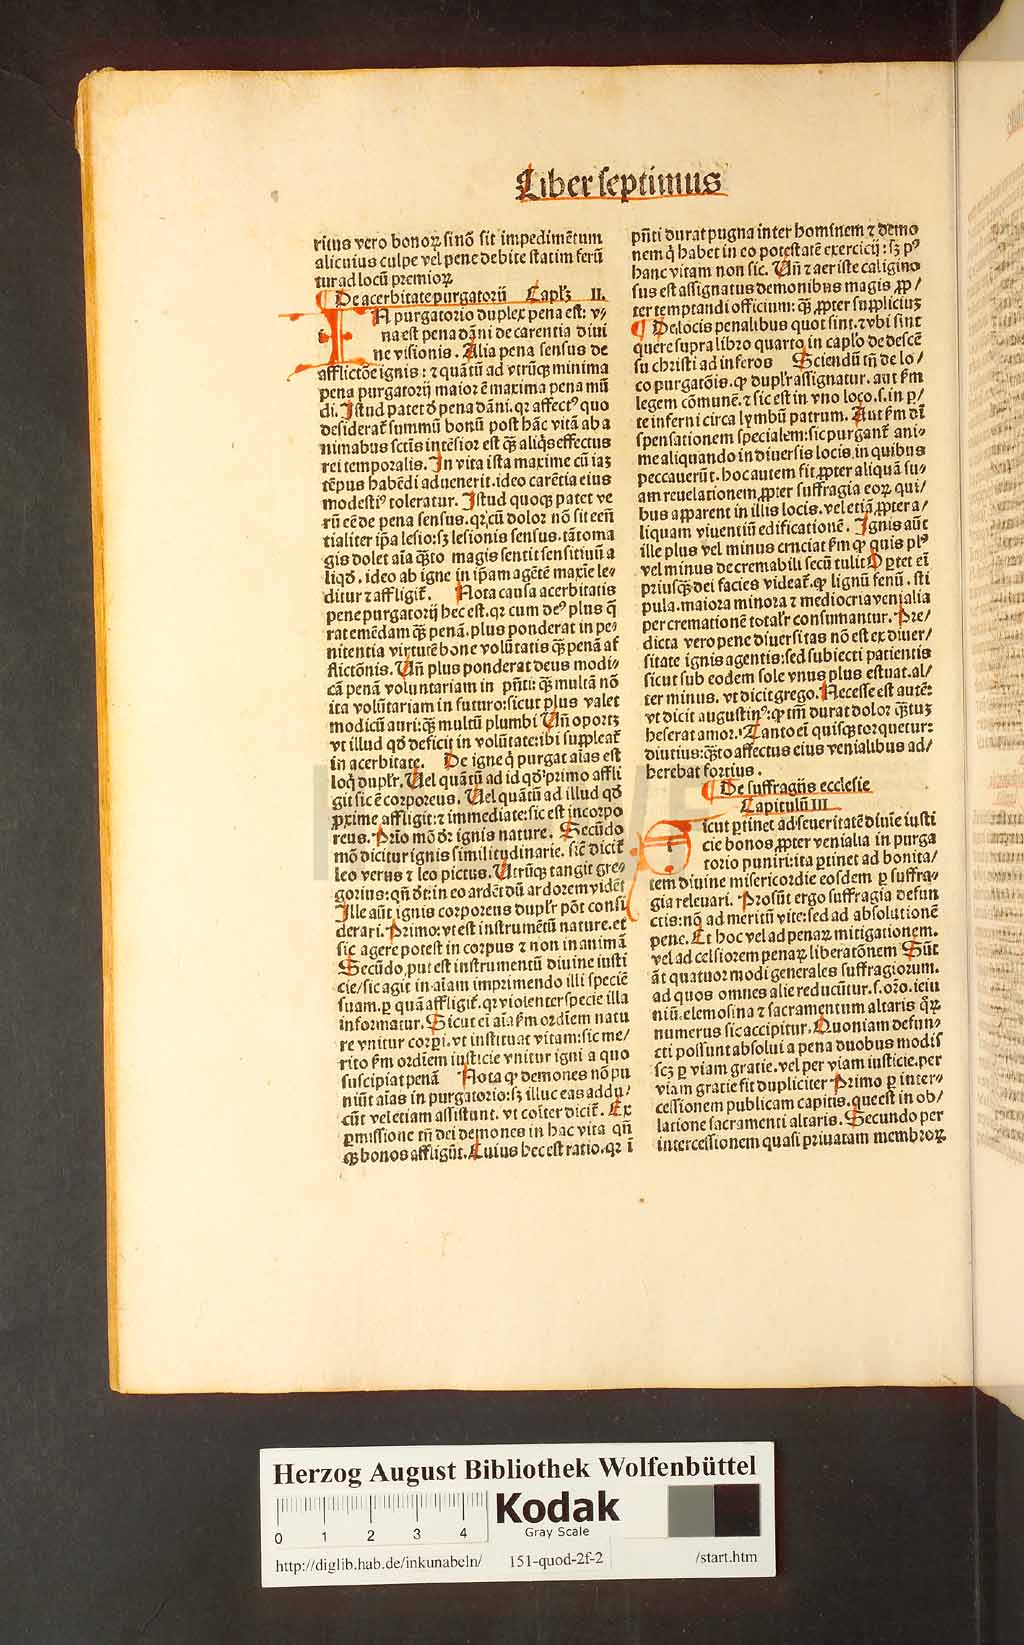 Liber septimus
ritus vero bonoꝝ sinō sit impedimētum
alicuius culpe vel pene debite statim ferū
tur ad locū premioꝝ
De acerbitate purgatorij Caplꝫ II.
IN purgatorio duplex pena est: v⸗
na est pena dāni de carentia diui
ne visionis. Alia pena sensus de
afflictōe ignis: ⁊ quātū ad vtrūqꝫ minima
pena purgatorij maior ē maxima pena mū
di. Istud patet ð pena dāni. qꝛ affectꝰ quo
desiderat̄ summū bonū post hāc vitā ab a
nimabus sctīs intēsior est qꝫ̄ aliqͥs effectus
rei temporalis. In vita ista maxime cū iaꝫ
tēpus habēdi aduenerit. ideo carētia eius
modestiꝰ toleratur. Istud quoqꝫ patet ve
rū eē de pena sensus. qꝛ cū dolor nō sit eēn
tialiter ip̄a lesio: sꝫ lesionis sensus. tāto ma
gis dolet aīa qꝫ̄to magis sentit sensitiuū a
liqð. ideo ab igne in ip̄am agēte maxīe le⸗
ditur ⁊ affligit̄. Nota causa acerbitatis
pene purgatorij hec est. qꝛ cum deꝰ plus q̄
rat emēdam qꝫ̄ penā. plus ponderat in pe⸗
nitentia virtutē bone volūtatis qꝫ̄ penā af
flictōnis. Vn̄ plus ponderat deus modi⸗
cā penā voluntariam in pn̄ti: qꝫ̄ multā nō
ita volūtariam in futuro: sicut plus valet
modicū auri: qꝫ̄ multū plumbi Vn̄ oportꝫ
vt illud qð deficit in volūtate: ibi suppleat̄
in acerbitate. De igne q̄ purgat aīas est
loqͥ duplr̄. Vel quātū ad id qð primo affli
git sic ē corporeus. Vel quātū ad illud qð
ꝓxime affligit: ⁊ immediate: sic est incorpo
reus. Prīo mō ðr ignis nature. Secūdo
mō dicitur ignis similitudinarie. sic̄ dicit̄
leo verus ⁊ leo pictus. Vtrūqꝫ tangit gre⸗
gorius: qn̄ ðt: in eo ardēt dū ardorem vidēt
Ille aūt ignis corporeus duplr̄ pōt consi
derari. Primo: vt est instrumētū nature. et
sic agere potest in corpus ⁊ non in animā
Secūdo, put est instrumentū diuine iusti
cie/ sic agit in aīam imprimendo illi speciē
suam. ꝑ quā affligit̄. qꝛ violenter specie illa
informatur. Sicut ei aīa ẜm ordīem natu
re vnitur corpi. vt instituat vitam: sic me/
rito ẜm ordīem iusticie vnitur igni a quo
suscipiat penā Nota ꝙ demones nō pu
niūt aīas in purgatorio: sꝫ illuc eas addu⸗
cūt vel etiam assistunt. vt cōiter dicit̄. Ex
ꝑmissione tn̄ dei demones in hac vita qn̄
qꝫ bonos affligūt. Cuius hec est ratio. qꝛ ī
pn̄ti durat pugna inter hominem ⁊ demo
nem qͥ habet in eo potestatē exercicij: sꝫ pꝰ
hanc vitam non sic. Vn̄ ⁊ aer iste caligino
sus est assignatus demonibus magis ꝓp/
ter temptandi officium: qꝫ̄ ꝓpter supplicium
De locis penalibus quot sint. ⁊ vbi sint
quere supra libro quarto in caplo de descē
su christi ad inferos Sciendū tn̄ de lo/
co purgatōis. ꝙ duplr̄ assignatur. aut ẜm
legem cōmunē. ⁊ sic est in vno loco. s. in p/
te inferni circa lymbū patrum. Aut ẜm di
spensationem specialem: sic purgant̄ ani⸗
me aliquando in diuersis locis. in quibus
peccauerūt. hoc autem fit ꝓpter aliquā su⸗
am reuelationem, ꝓpter suffragia eoꝝ qui/
bus apparent in illis locis. vel etiā ꝓpter a/
liquam viuentiū edificationē. Ignis aūt
ille plus vel minus cruciat ẜm ꝙ quis plꝰ
vel minus de cremabili secū tulit Oꝑtet ei
priusqꝫ̄ dei facies videat̄. ꝙ lignū fenū. sti
pula. maiora minora ⁊ mediocria venialia
per cremationē totalr̄ consumantur. Pre/
dicta vero pene diuersitas nō est ex diuer/
sitate ignis agentis: sed subiecti patientis
sicut sub eodem sole vnus plus estuat. al/
ter minus. vt dicit grego. Necesse est autē:
vt dicit augustinꝰ: ꝙ tm̄ durat dolor qꝫ̄tuꝫ
heserat amor. Tanto ei quisqꝫ torquetur:
diutius: qꝫ̄to affectus eius venialibus ad/
herebat fortius.
De suffragijs ecclesie
Capitulū III
Sicut ꝑtinet ad seueritatē diuīe iusti
cie bonos ꝓpter venialia in purga
torio puniri: ita ꝑtinet ad bonita/
tem diuine misericordie eosdem ꝑ suffra⸗
gia releuari. Prosūt ergo suffragia defun
ctis: nō ad meritū vite: sed ad absolutionē
pene. Et hoc vel ad penaꝝ mitigationem.
vel ad celsiorem penaꝝ liberatōnem Sūt
āt quatuor modi generales suffragiorum.
ad quos omnes alie reducūtur. s. oro. ieiu
niū. elemosina ⁊ sacramentum altaris qͥꝝ
numerus sic accipitur. Quoniam defun⸗
cti possunt absolui a pena duobus modis
scꝫ ꝑ viam gratie. vel per viam iusticie. per
viam gratie fit dupliciter Primo ꝑ inter⸗
cessionem publicam capitis. que est in ob/
latione sacramenti altaris. Secundo per
intercessionem quasi priuatam membroꝝ
Herzog August Bibliothek Wolfenbüttel
Kodak
Gray Scale
0 1 2 3 4
http://diglib.hab.de/inkunabeln/ 151-quod-2f-2 /start.htm